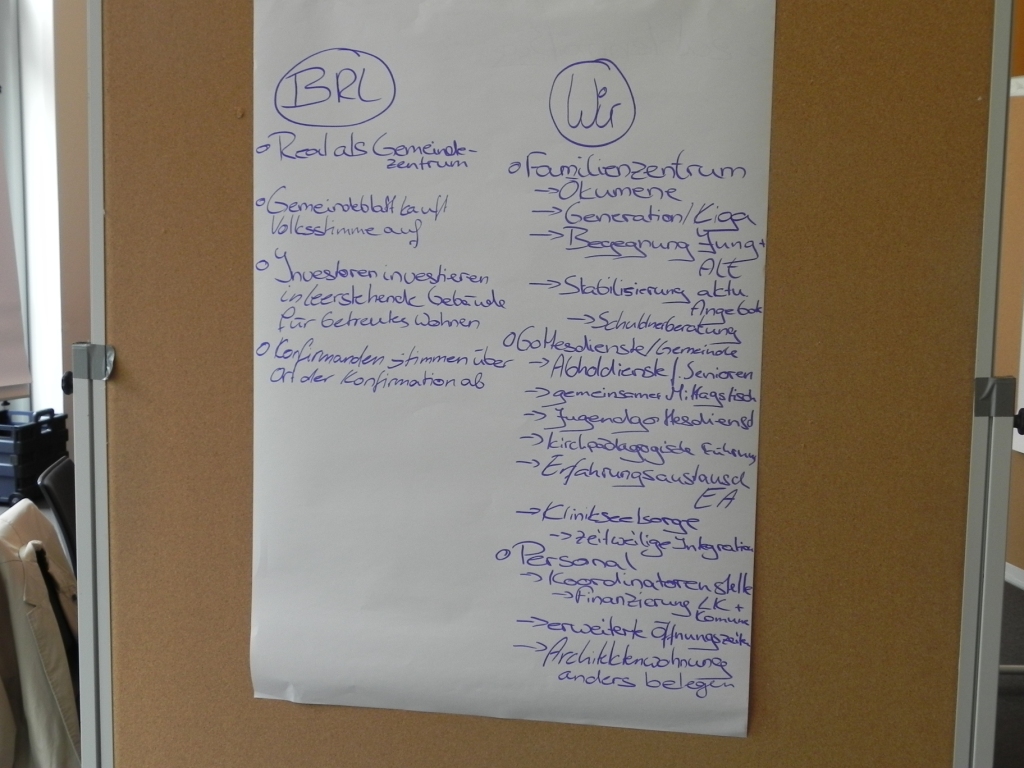 BRL
o Real als Gemeinde-
zentrum
o Gemeindeblatt kauft
Volksstimme auf
o Investoren investieren
in leerstehende Gebäude
für Betreutes Wohnen
o Konfirmanden stimmen über
Ort der Konfirmation ab
Wir
o Familienzentrum
→ Ökumene
→ Generation/Kiga
→ Begegnung Jung +
Alt
→ Stabilisierung aktu
Angebot
→ Schuldnerberatung
o Gottesdienste/Gemeinde
→ Abholdienste/Senioren
→ gemeinsamer Mittagstisch
→ Jugendgottesdienst
→ Kirchpädagogische Führung
→ Erfahrungsaustausch
EA
→ Klinikseelsorge
→ zeitweilige Integration
o Personal
→ Koordinatorenstelle
→ Finanzierung LK +
Kommune
→ erweiterte Öffnungszeiten
→ Architektenwohnung
anders belegen